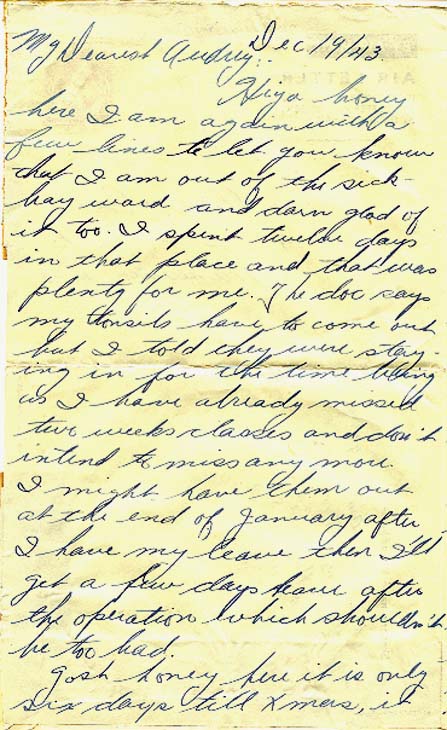 Dec 19/43.
My Dearest Audrey:
Hiya honey
here I am again with a
few lines to let you know
that I am out of the sick-
bay ward and darn glad of
it too. I spent twelve days
in that place and that was
plenty for me. The doc says
my tonsils have to come out
but I told they were stay-
ing in for the time being
as I have already missed
two weeks classes and don't
intend to miss any more.
I might have them out
at the end of January after
I have my leave then I'll
get a few days leave after
the operation which shouldn't
be too bad.
Gosh honey here it is only
six days till Xmas, it